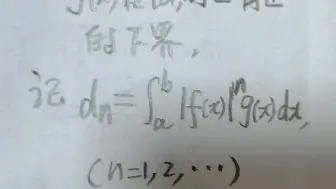 的下界,
记 dₙ=∫ₐᵇ|f(x)|ⁿg(x)dx,
(n=1,2,⋯)